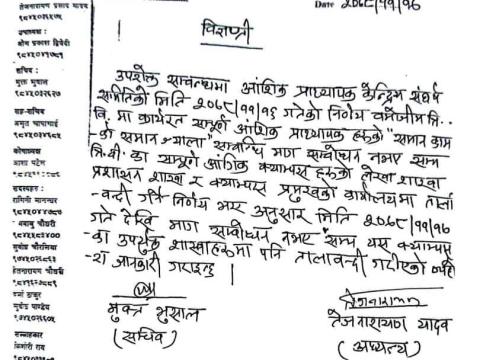 तेजनारायण प्रसाद यादव
९८४२०४९६७८
उपाध्यक्ष :
ओम प्रकाश द्विवेदी
९८४२०४९७८९
सचिव :
मुक्त भुसाल
९८५२०३२६२७
सह-सचिव
अमृत चापागाई
कोषाध्यक्ष
आशा पटेल
सदस्यहरु :
रामिनी मानन्धर
मुकेश चौरसिया
हेतनारायण चौधरी
वर्मा ठाकुर
मुबोध पाण्डेय
सल्लाहकार
किशोरी राय
Date २०६८/११/१६
विज्ञप्ती
उपरोक्त सम्बन्धमा आंशिक प्राध्यापक केन्द्रिय संघर्ष
समितिको मिति २०६८/११/१६ गतेको निर्णय बमोजिम
वि. मा कार्यरत सम्पूर्ण आंशिक प्राध्यापक हरुको "समान काम
-को समान ज्याला" सम्बन्धि माग सम्बोधन नभए सम्म
त्रि.वी. का सम्पूर्ण आंगिक क्याम्पस हरुको लेखा शाखा
प्रशासन शाखा र क्याम्पस प्रमुखको कार्यालयमा ताला
-बन्दी गर्ने निर्णय भए अनुसार मिति २०६८/११/१६
गते देखि माग सम्बोधन नभए सम्म यस क्याम्पस
-का उपर्युक्त शाखाहरुमा पनि तालाबन्दी गरीएको
-रा जानकारी गराइन्छ।
मुक्त भुसाल
(सचिव)
तेजनारायण यादव
(अध्यक्ष)